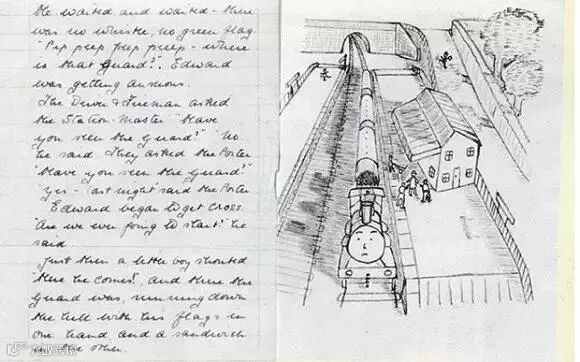 He waited and waited - there
was no whistle, no green flag.
"Peep peep peep peep - where
is that Guard?". Edward
was getting anxious.
The Driver & Fireman asked
the Station-Master "Have
you seen the Guard?" "No"
he said. They asked the Porter
"Have you seen the Guard?"
"Yes - last night" said the Porter
Edward began to get cross.
"Are we ever going to start?" he
said.
Just then a little boy shouted
"Here he comes!" and there the
Guard was, running down
the hill with his flags in
one hand and a sandwich
in the other.